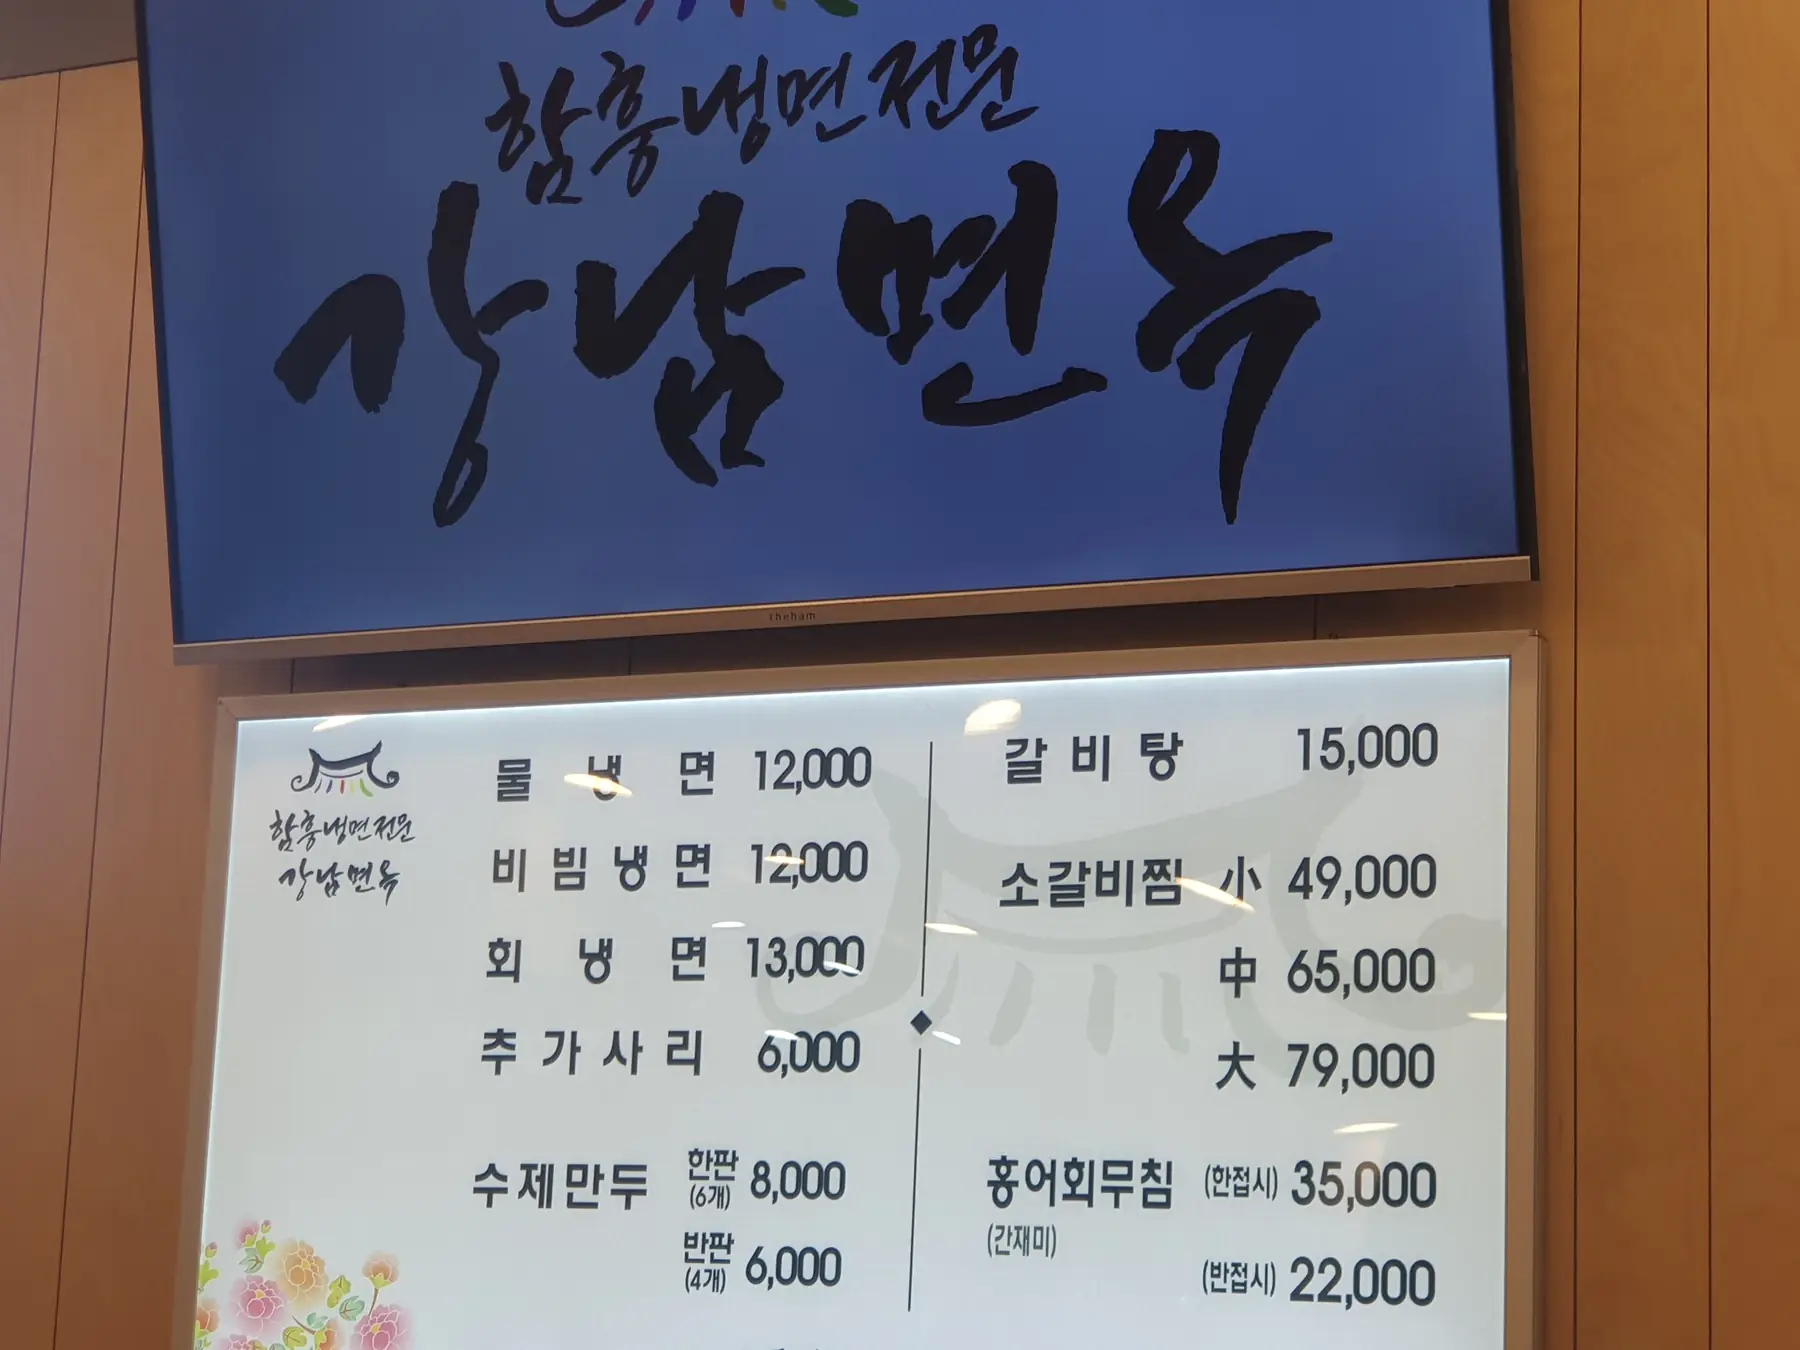 함흥냉면전문
강남면옥
theham
함흥냉면전문
강남면옥
물냉면 12,000
비빔냉면 12,000
회냉면 13,000
추가사리 6,000
수제만두 한판 (6개) 8,000
반판 (4개) 6,000
갈비탕 15,000
소갈비찜 小 49,000
中 65,000
大 79,000
홍어회무침 (한접시) 35,000
(간재미)
(반접시) 22,000